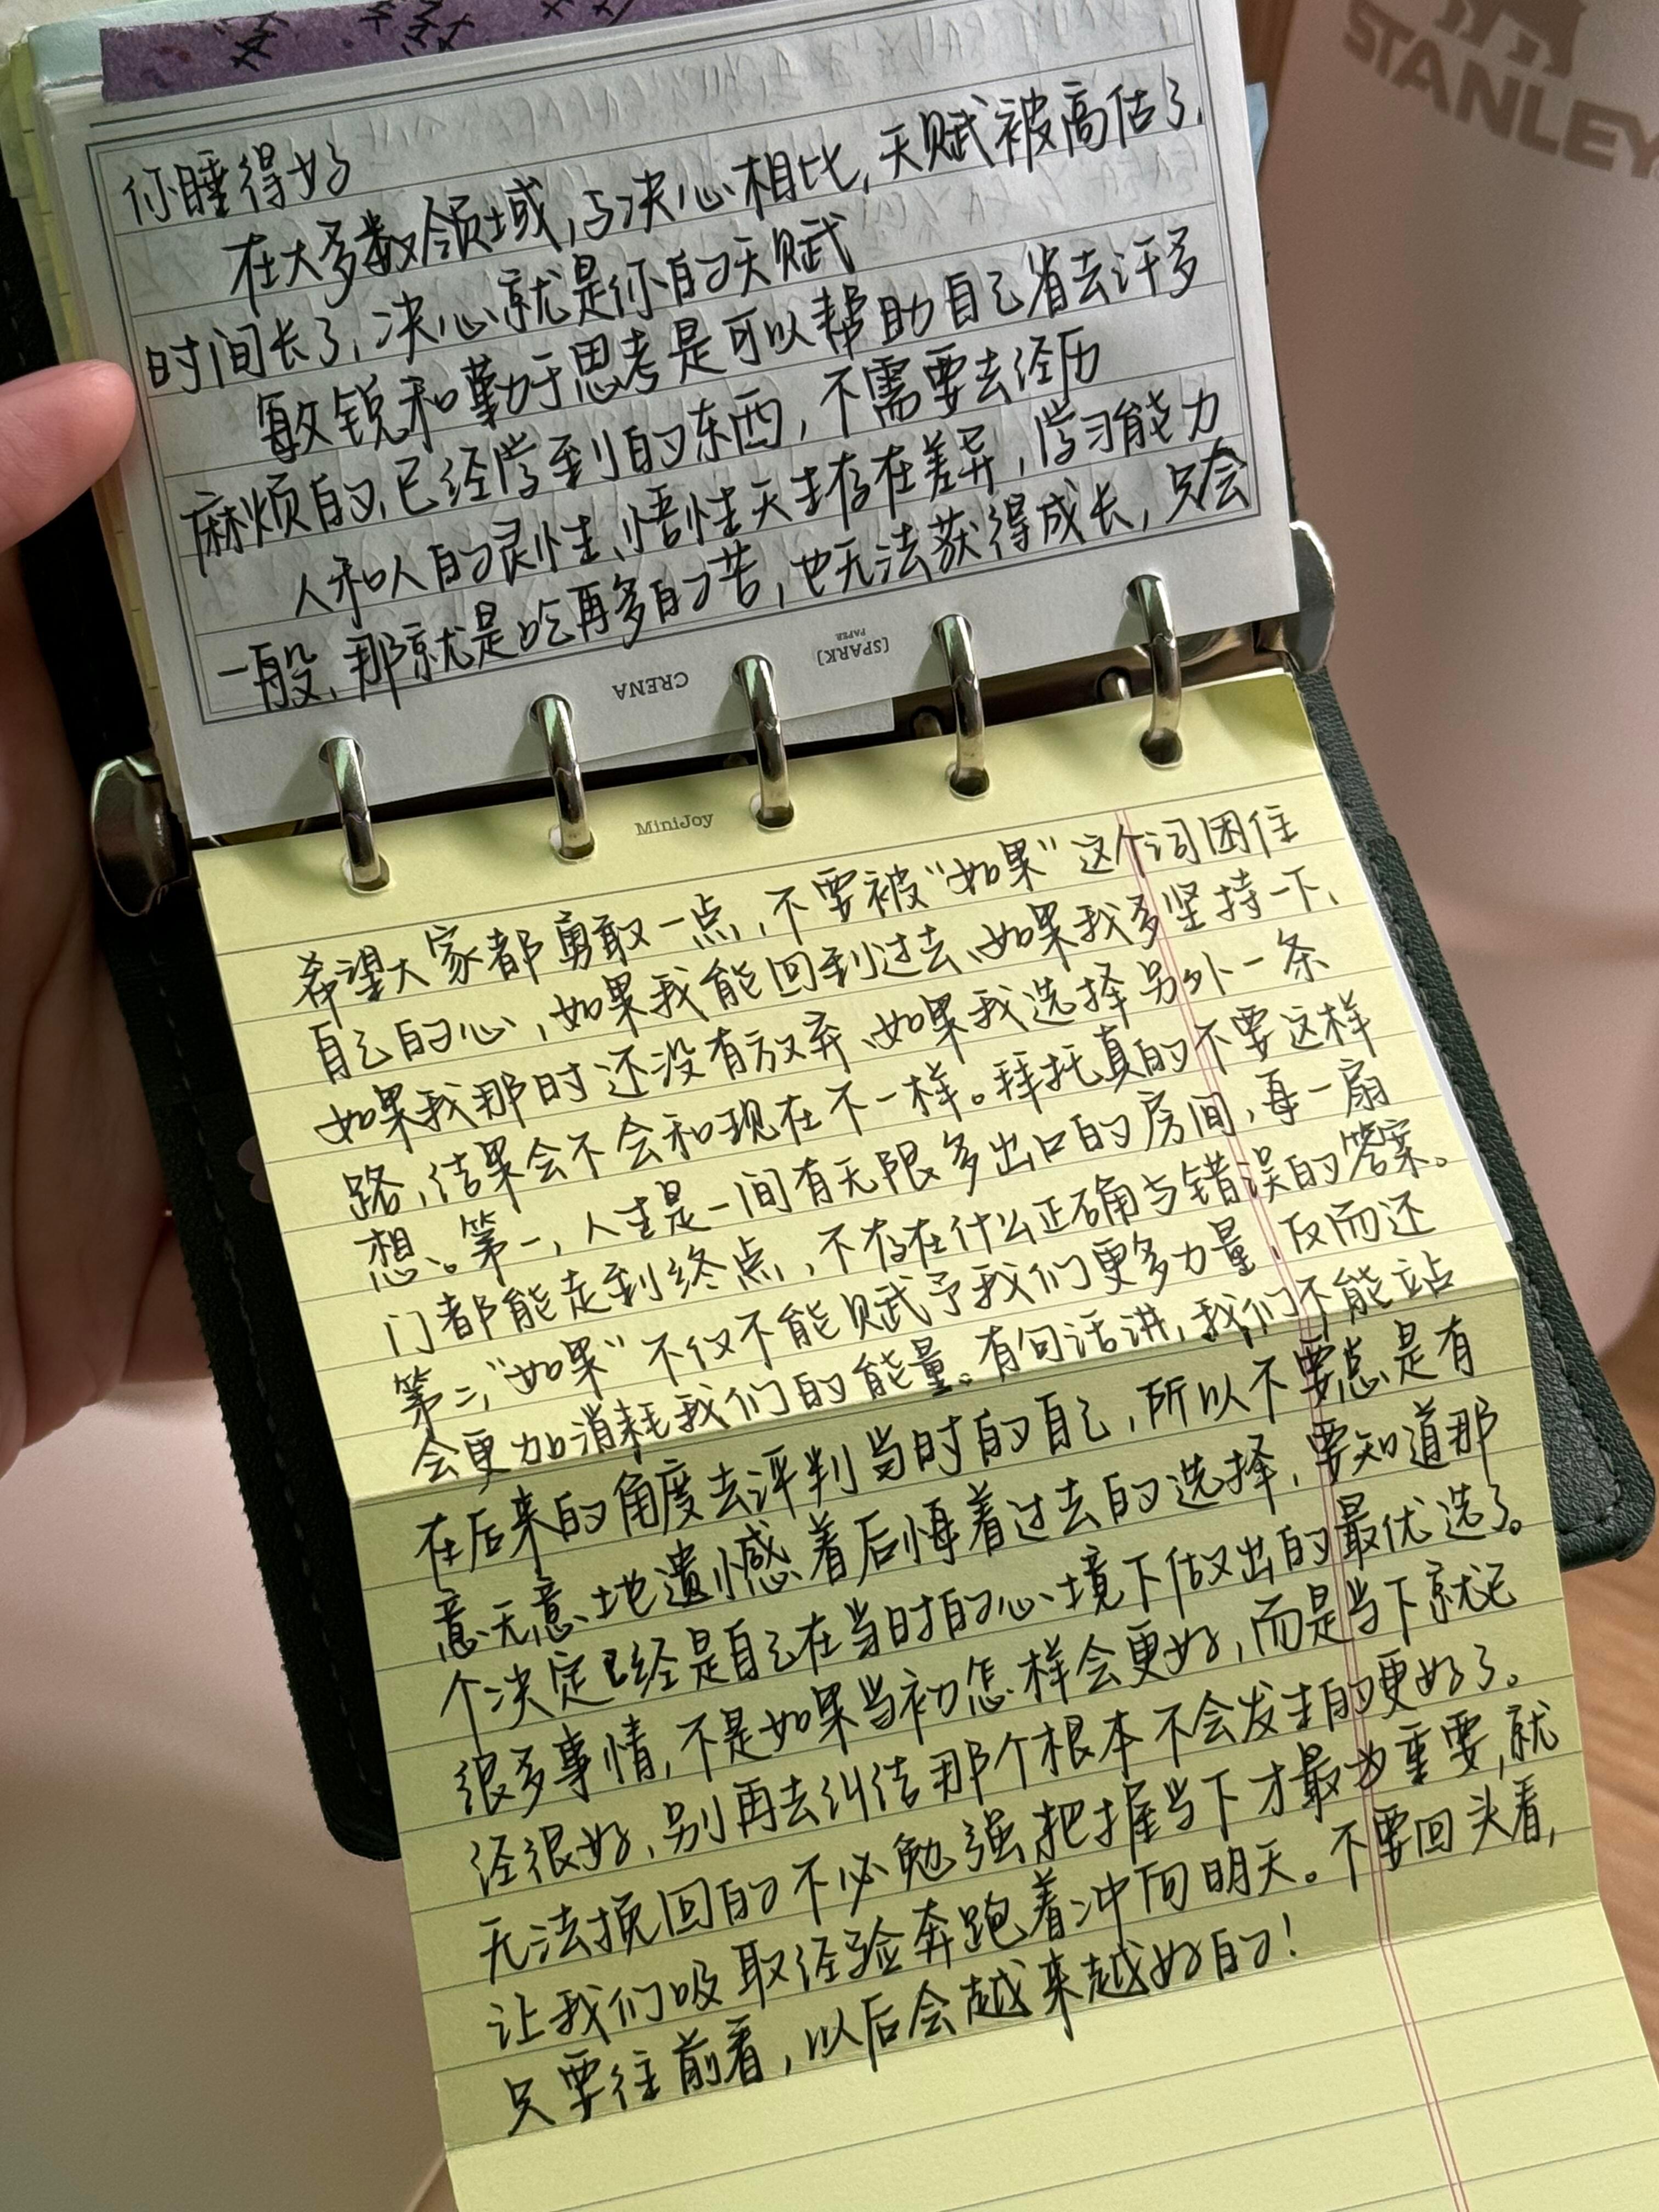 STANLEY
你睡得好
在大多数领域,与决心相比,天赋被高估了、
时间长了、决心就是你的天赋
敏锐和勤于思考是可以帮助自己省去许多
麻烦的、已经学到的东西,不需要去经历
人和人的灵性、悟性天生存在差异,学习能力
一般、那就是吃再多的苦,也无法获得成长,只会
CRENA
[SPARK]
PAPER
MiniJoy
希望大家都勇敢一点、不要被“如果”这个词困住
自己的心,如果我能回到过去、如果我多坚持一下、
如果我那时还没有放弃、如果我选择另外一条
路、结果会不会和现在不一样。拜托真的不要这样
想。第一,人生是一间有无限多出口的房间,每一扇
门都能走到终点、不存在什么正确与错误的答案。
第二,“如果”不仅不能赋予我们更多力量、反而还
会更加消耗我们的能量。有句话讲,我们不能站
在后来的角度去评判当时的自己,所以不要总是有
意无意地遗憾着后悔着过去的选择、要知道那
个决定已经是自己在当时的心境下做出的最优选了。
很多事情,不是如果当初怎样会更好,而是当下就已
经很好、别再去纠结那个根本不会发生的更好了。
无法挽回的不必勉强、把握当下才最为重要,就
让我们吸取经验奔跑着冲向明天。不要回头看,
只要往前看,以后会越来越好的!